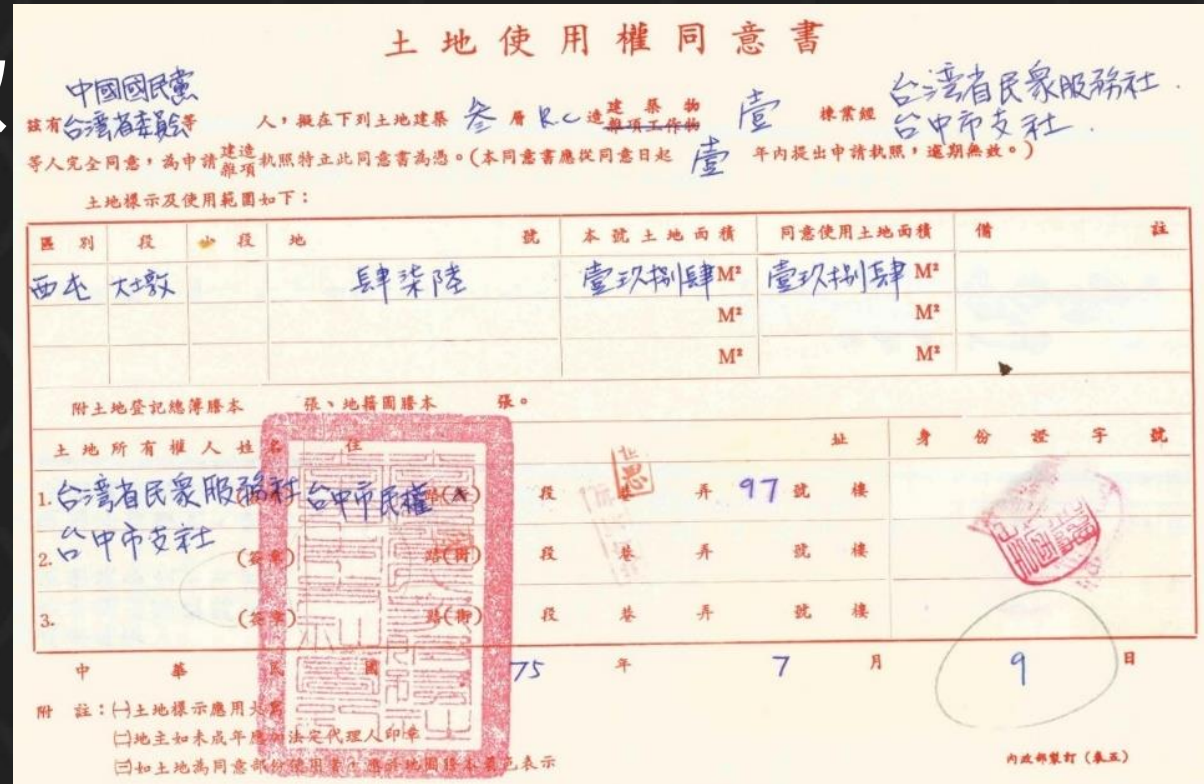 土地使用權同意書
中國國民黨
台灣省委員會
台灣省民眾服務社.
茲有 等 人,擬在下列土地建築 叁 層 R.C 造 建築物 雜項工作物 壹 棟業經 台中市支社.
等人完全同意,為申請建造雜項執照特立此同意書為憑。(本同意書應從同意日起 壹 年內提出申請執照,逾期無效。)
土地標示及使用範圍如下:
區別 段 小段 地號 本號土地面積 同意使用土地面積 備註
西屯 大墩 肆柒陸 壹玖捌肆M² 壹玖捌肆M²
M² M²
M² M²
附土地登記總簿謄本 張、地籍圖謄本 張。
土地所有權人姓名 住址 身份證字號
1. 台灣省民眾服務社 台中市民權 路(街) 段 巷 弄 97 號 樓
2. 台中市支社 (簽章) 路(街) 段 巷 弄 號 樓
3. (簽章) 路(街) 段 巷 弄 號 樓
中華民國 75 年 7 月 9 日
附註:㈠土地標示應用大寫
㈡地主如未成年應 法定代理人印章
㈢如土地為同意部份使用者,應 地圖謄本着色表示
內政部製訂(表五)